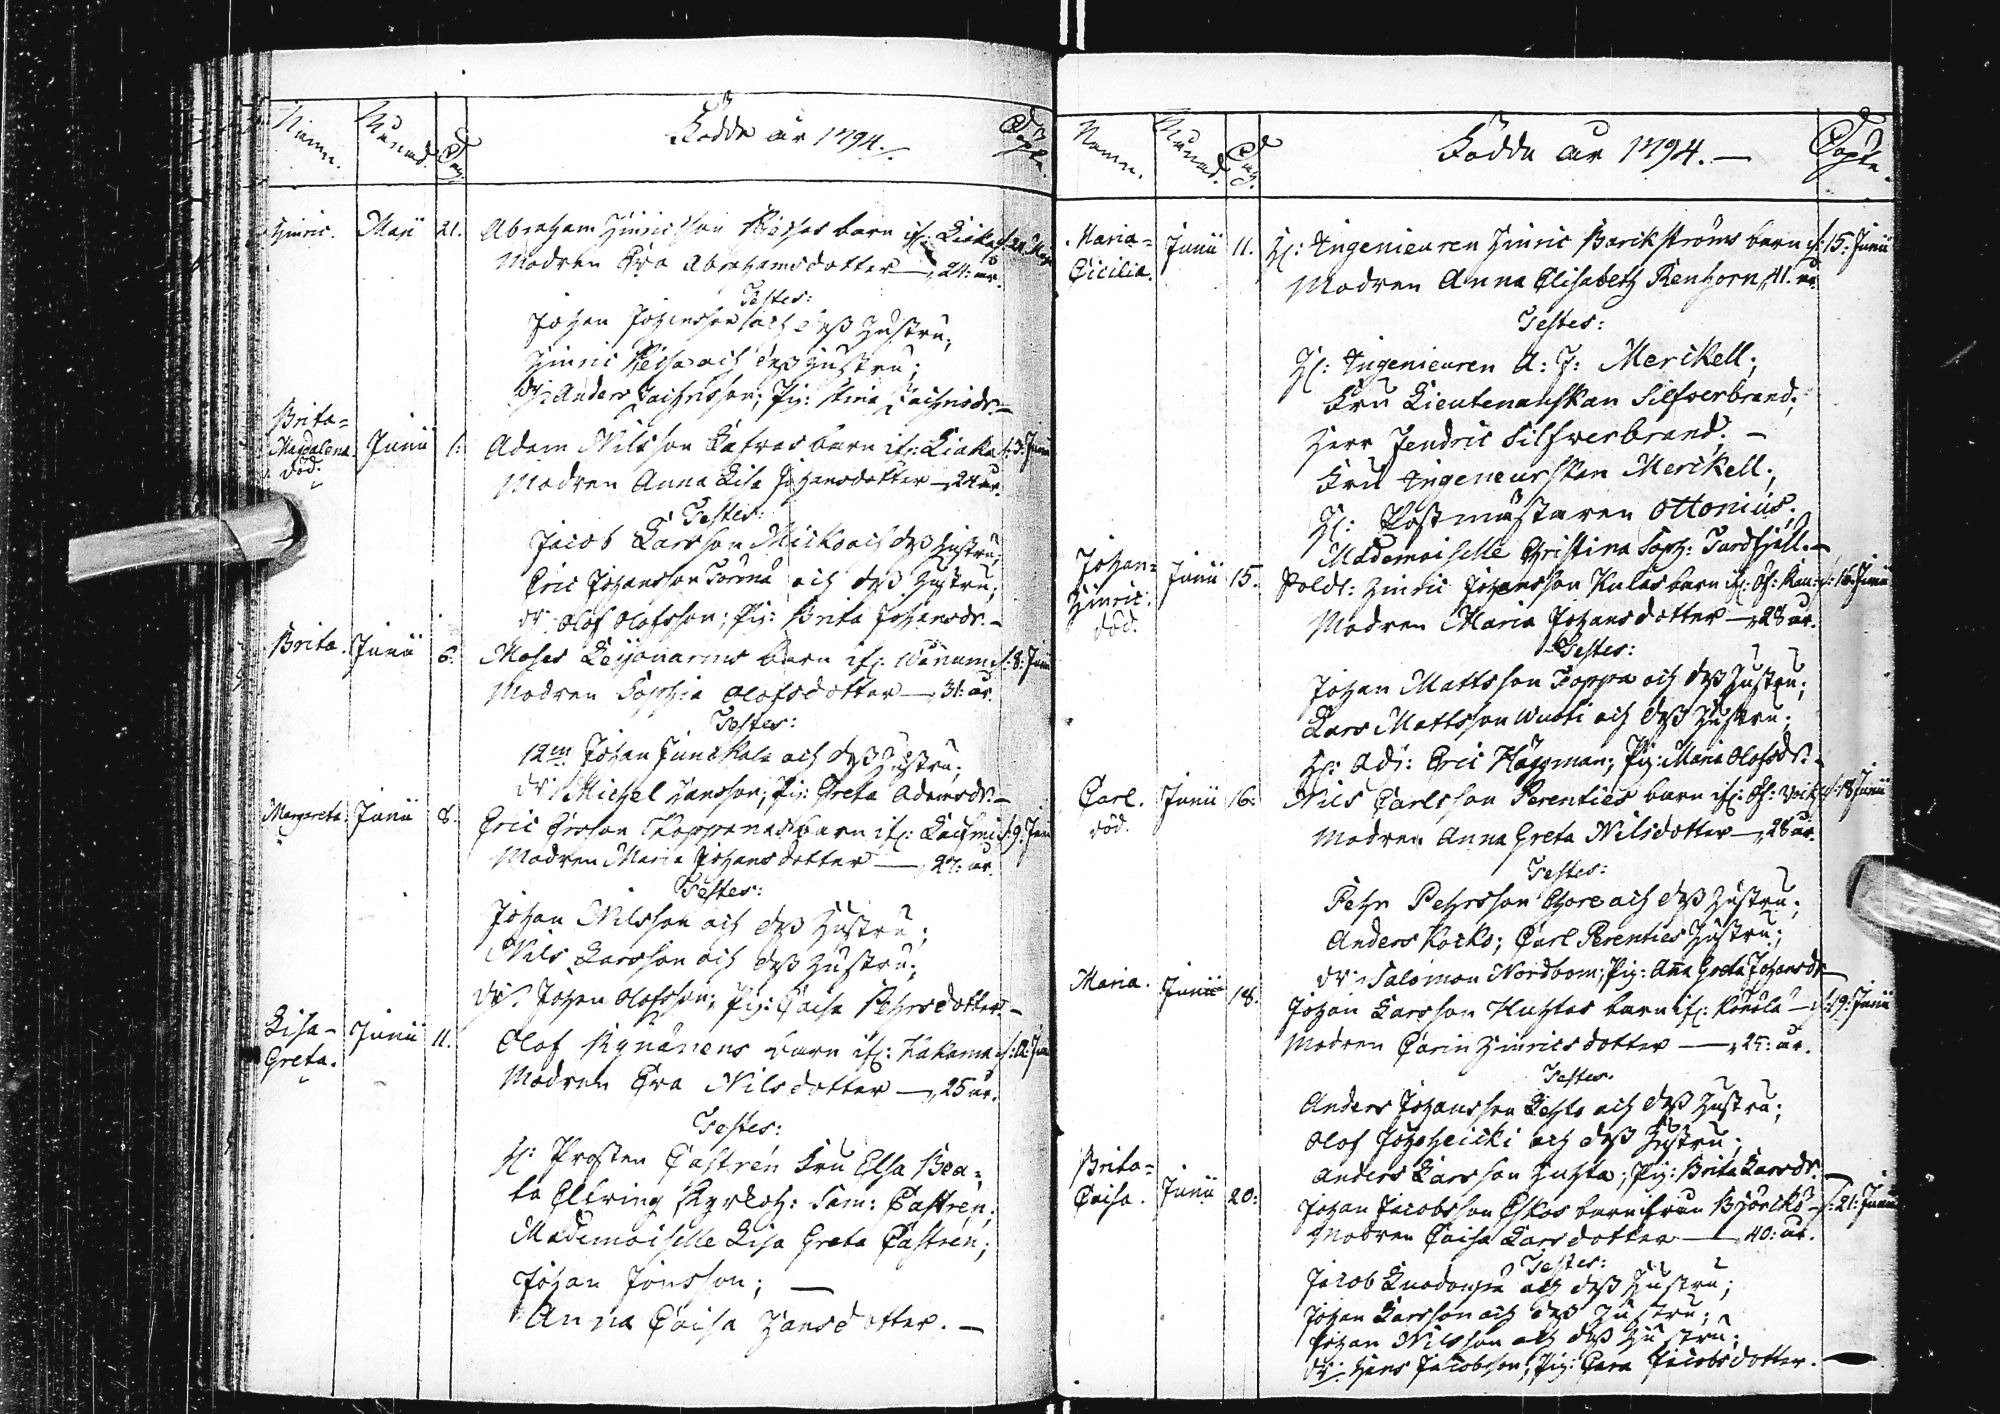 Namn. Månad. Dag. Födde år 1794. Döpte.
Hinric. Maji 21. Abraham Hinricsson barn
Modren Eva Abrahamsdotter — 24: år.
Testes:
Johan Johansson och deß Hustru;
Hinric och deß Hustru;
Dr: Anders Zachrisson; Pig: Stina Zachrisdr. —
Brita-
Magdalena. Junii 1. Adam Nilsson barn if: Liaka d. 3. Junii
död.
Modren Anna Lisa Johansdotter — 24 år.
Testes:
Jacob Larsson Micko och deß Hustru;
Eric Johansson och deß Hustru;
Dr: Olof Olofsson; Pig: Brita Johansdr. —
Brita. Junii 6. Moses barn if: d. 8. Junii
Modren Sophia Olofsdotter — 31: år.
Testes:
Johan Junckala och deß Hustru;
Dr: Michel Hansson; Pig: Greta Adamsdr. —
Margareta. Junii 8. Eric Ersson barn if: d: 9: Junii
Modren Maria Johansdotter — 27: år.
Testes:
Johan Nilsson och deß Hustru;
Nils Larsson och deß Hustru;
Dr: Johan Olofsson; Pig: Caisa Pehrsdotter. —
Lisa-
Greta. Junii 11. Olof barn if: Kakama
Modren Eva Nilsdotter — 25 år.
Testes:
H: Prosten Castrén Fru Elsa Bea-
ta Elfving Kyrkoh: Sam: Castrén;
Mademoiselle Lisa Greta Castrén;
Johan Jönsson; —
Anna Caisa Hansdotter. —
Namn. Månad. Dag. Födde år 1794. — Döpte.
Maria-
Cicilia. Junii 11. H: Ingenieuren Hinric Barckströms barn d: 15: Junii
Modren Anna Elisabeth Renhorn, 41. år.
Testes:
H: Ingenieuren A: J: Merckell;
Fru Lieutenanskan Silfverbrand;
Herr Fendric Silfverbrand. —
Fru Ingeneurskan Merckell;
H: Postmästaren Ottonius;
Mademoiselle Christina Soph: —
Johan-
Hinric. Junii 15. Soldt: Hinric Johansson barn if: d: 16. Junii
död.
Modren Maria Johansdotter — 28 år.
Testes:
Johan Mattsson Poppa och deß Hustru;
Lars Mattsson och deß Hustru;
H: Adj: Eric Häggman; Pig: Maria Olofsdr. —
Carl. Junii 16: Nils Carlsson Perenties barn if: d: 18 Junii
död.
Modren Anna Greta Nilsdotter — 28 år.
Testes:
Pehr Pehrsson och deß Hustru;
Anders Kocko; Carl Perenties Hustru;
Dr: Salomon Nordbom; Pig: Aña Greta Johansdr —
Maria. Junii 18. Johan Larsson Huhtas barn if: — d: 19: Junii
Modren Carin Hinricsdotter — 25: år.
Testes.
Anders Johansson och deß Hustru;
Olof och deß Hustru;
Anders Larsson Huhta; Pig: Brita Larsdr. —
Brita-
Caisa. Junii 20: Johan Jacobsson Eskos barn från Björckö — d: 21: Junii
Modren Caisa Larsdotter — 40: år.
Testes:
Jacob och deß Hustru;
Johan Larsson och deß Hustru;
Johan Nilsson och deß Hustru;
Dr: Hans Jacobsson; Pig: Cara Jacobsdotter. —